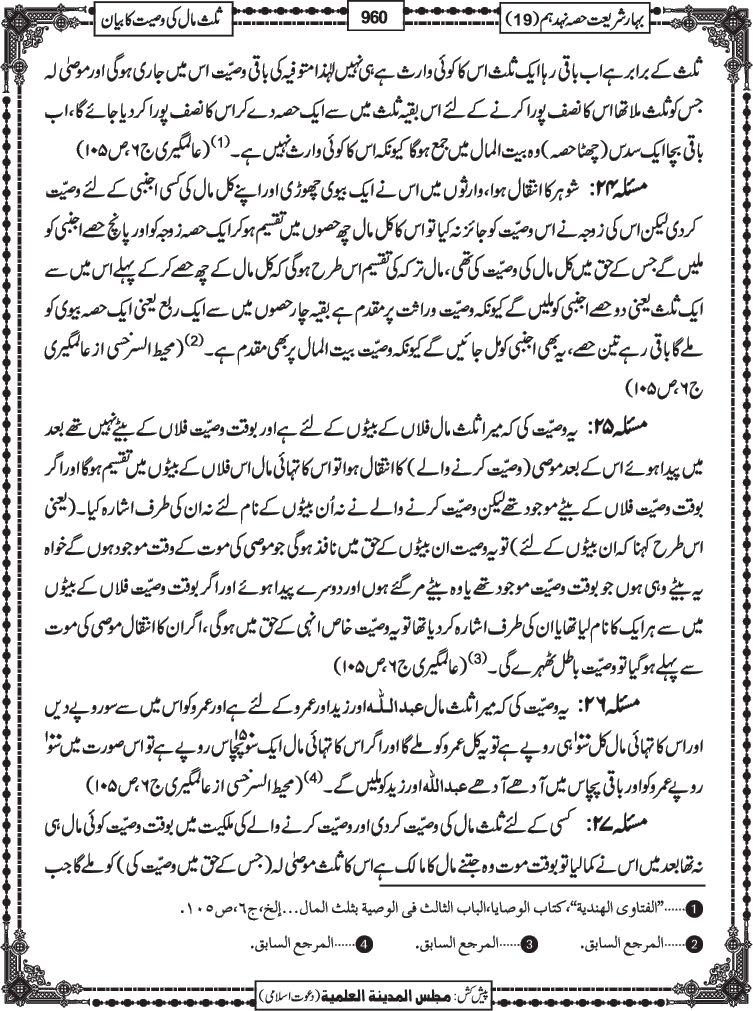 بہار شریعت حصہ نہدہم (19)
960
ثلث مال کی وصیت کا بیان
ثلث کے برابر ہے اب باقی رہا ایک ثلث اس کا کوئی وارث ہے ہی نہیں لہٰذا متوفیہ کی باقی وصیّت اس میں جاری ہوگی اور موصیٰ لہ
جس کو ثلث ملا تھا اس کا نصف پورا کرنے کے لئے اس بقیہ ثلث میں سے ایک حصہ دے کر اس کا نصف پورا کر دیا جائے گا، اب
باقی بچا ایک سدس (چھٹا حصہ) وہ بیت المال میں جمع ہوگا کیونکہ اس کا کوئی وارث نہیں ہے۔(1) (عالمگیری ج۶، ص۱۰۵)
مسئلہ ۲۴: شوہر کا انتقال ہوا، وارثوں میں اس نے ایک بیوی چھوڑی اور اپنے کل مال کی کسی اجنبی کے لئے وصیّت
کردی لیکن اس کی زوجہ نے اس وصیّت کو جائز نہ کیا تو اس کا کل مال چھ حصوں میں تقسیم ہو کر ایک حصہ زوجہ کو اور پانچ حصے اجنبی کو
ملیں گے جس کے حق میں کل مال کی وصیّت کی تھی، مال ترکہ کی تقسیم اس طرح ہوگی کہ کل مال کے چھ حصے کر کے پہلے اس میں سے
ایک ثلث یعنی دو حصے اجنبی کو ملیں گے کیونکہ وصیّت وراثت پر مقدم ہے بقیہ چار حصوں میں سے ایک ربع یعنی ایک حصہ بیوی کو
ملے گا باقی رہے تین حصے، یہ بھی اجنبی کو مل جائیں گے کیونکہ وصیّت بیت المال پر بھی مقدم ہے۔(2) (محیط السرخسی از عالمگیری
ج۶، ص۱۰۵)
مسئلہ ۲۵: یہ وصیّت کی کہ میرا ثلث مال فلاں کے بیٹوں کے لئے ہے اور بوقت وصیّت فلاں کے بیٹے نہیں تھے بعد
میں پیدا ہوئے اس کے بعد موصی (وصیّت کرنے والے) کا انتقال ہوا تو اس کا تہائی مال اس فلاں کے بیٹوں میں تقسیم ہوگا اور اگر
بوقت وصیّت فلاں کے بیٹے موجود تھے لیکن وصیّت کرنے والے نے نہ اُن بیٹوں کے نام لئے نہ ان کی طرف اشارہ کیا۔ (یعنی
اس طرح کہنا کہ ان بیٹوں کے لئے) تو یہ وصیت ان بیٹوں کے حق میں نافذ ہوگی جو موصی کی موت کے وقت موجود ہوں گے خواہ
یہ بیٹے وہی ہوں جو بوقت وصیّت موجود تھے یا وہ بیٹے مرگئے ہوں اور دوسرے پیدا ہوئے اور اگر بوقت وصیّت فلاں کے بیٹوں
میں سے ہر ایک کا نام لیا تھا یا ان کی طرف اشارہ کردیا تھا تو یہ وصیّت خاص انہی کے حق میں ہوگی، اگر ان کا انتقال موصی کی موت
سے پہلے ہوگیا تو وصیّت باطل ٹھہرے گی۔(3) (عالمگیری ج۶، ص۱۰۵)
مسئلہ ۲۶: یہ وصیّت کی کہ میرا ثلث مال عبداللّٰہ اور زید اور عمرو کے لئے ہے اور عمرو کو اس میں سے سو روپے دیں
اور اس کا تہائی مال کل سو۱۰۰ ہی روپے ہے تو یہ کل عمرو کو ملے گا اور اگر اس کا تہائی مال ایک سو پچاس۱۵۰ روپے ہے تو اس صورت میں سو۱۰۰
روپے عمرو کو اور باقی پچاس میں آدھے آدھے عبداللّٰہ اور زید کو ملیں گے۔(4) (محیط السرخسی از عالمگیری ج۶، ص۱۰۵)
مسئلہ ۲۷: کسی کے لئے ثلث مال کی وصیّت کردی اور وصیّت کرنے والے کی ملکیت میں بوقت وصیّت کوئی مال ہی
نہ تھا بعد میں اس نے کما لیا تو بوقت موت وہ جتنے مال کا مالک ہے اس کا ثلث موصیٰ لہ (جس کے حق میں وصیّت کی) کو ملے گا جب
1 ......"الفتاوی الهندیة"، کتاب الوصایا، الباب الثالث فی الوصیة بثلث المال...إلخ، ج۶، ص۱۰۵.
2 ......المرجع السابق. 3 ......المرجع السابق. 4 ......المرجع السابق.
پیش کش: مجلس المدینة العلمیة (دعوت اسلامی)